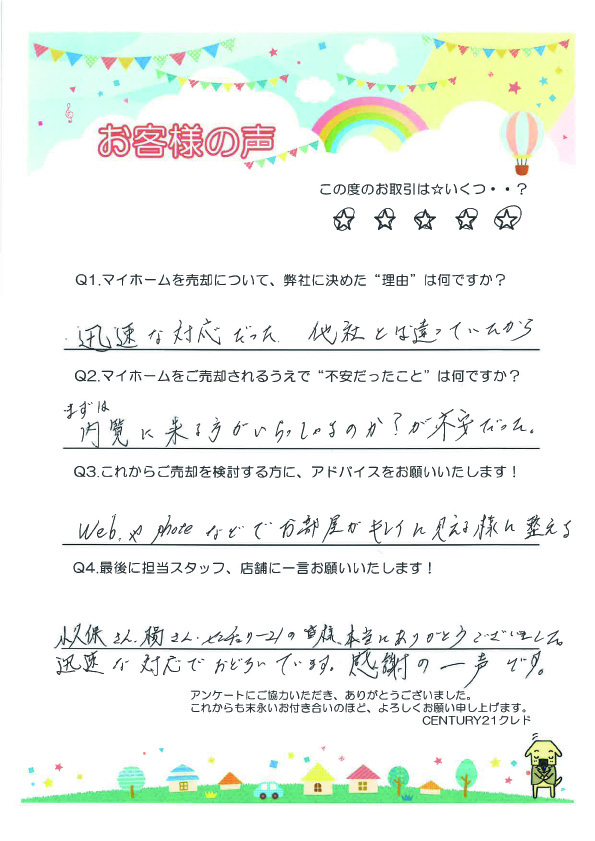 お客様の声
この度のお取引は☆いくつ・・？
☆ ☆ ☆ ☆ ☆
Q1.マイホームを売却について、弊社に決めた“理由”は何ですか？
迅速な対応だった 他社とは違っていたから
Q2.マイホームをご売却されるうえで“不安だったこと”は何ですか？
まずは
内覧に来る方がいらっしゃるのか？が不安だった。
Q3.これからご売却を検討する方に、アドバイスをお願いいたします！
Web.や photo などで お部屋がキレイに見える様に整える
Q4.最後に担当スタッフ、店舗に一言お願いいたします！
久保さん.楊さん.センチュリー21の皆様、本当にありがとうございました。
迅速な対応でおどろいています。感謝の一声です。
アンケートにご協力いただき、ありがとうございました。
これからも末永いお付き合いのほど、よろしくお願い申し上げます。
CENTURY21クレド